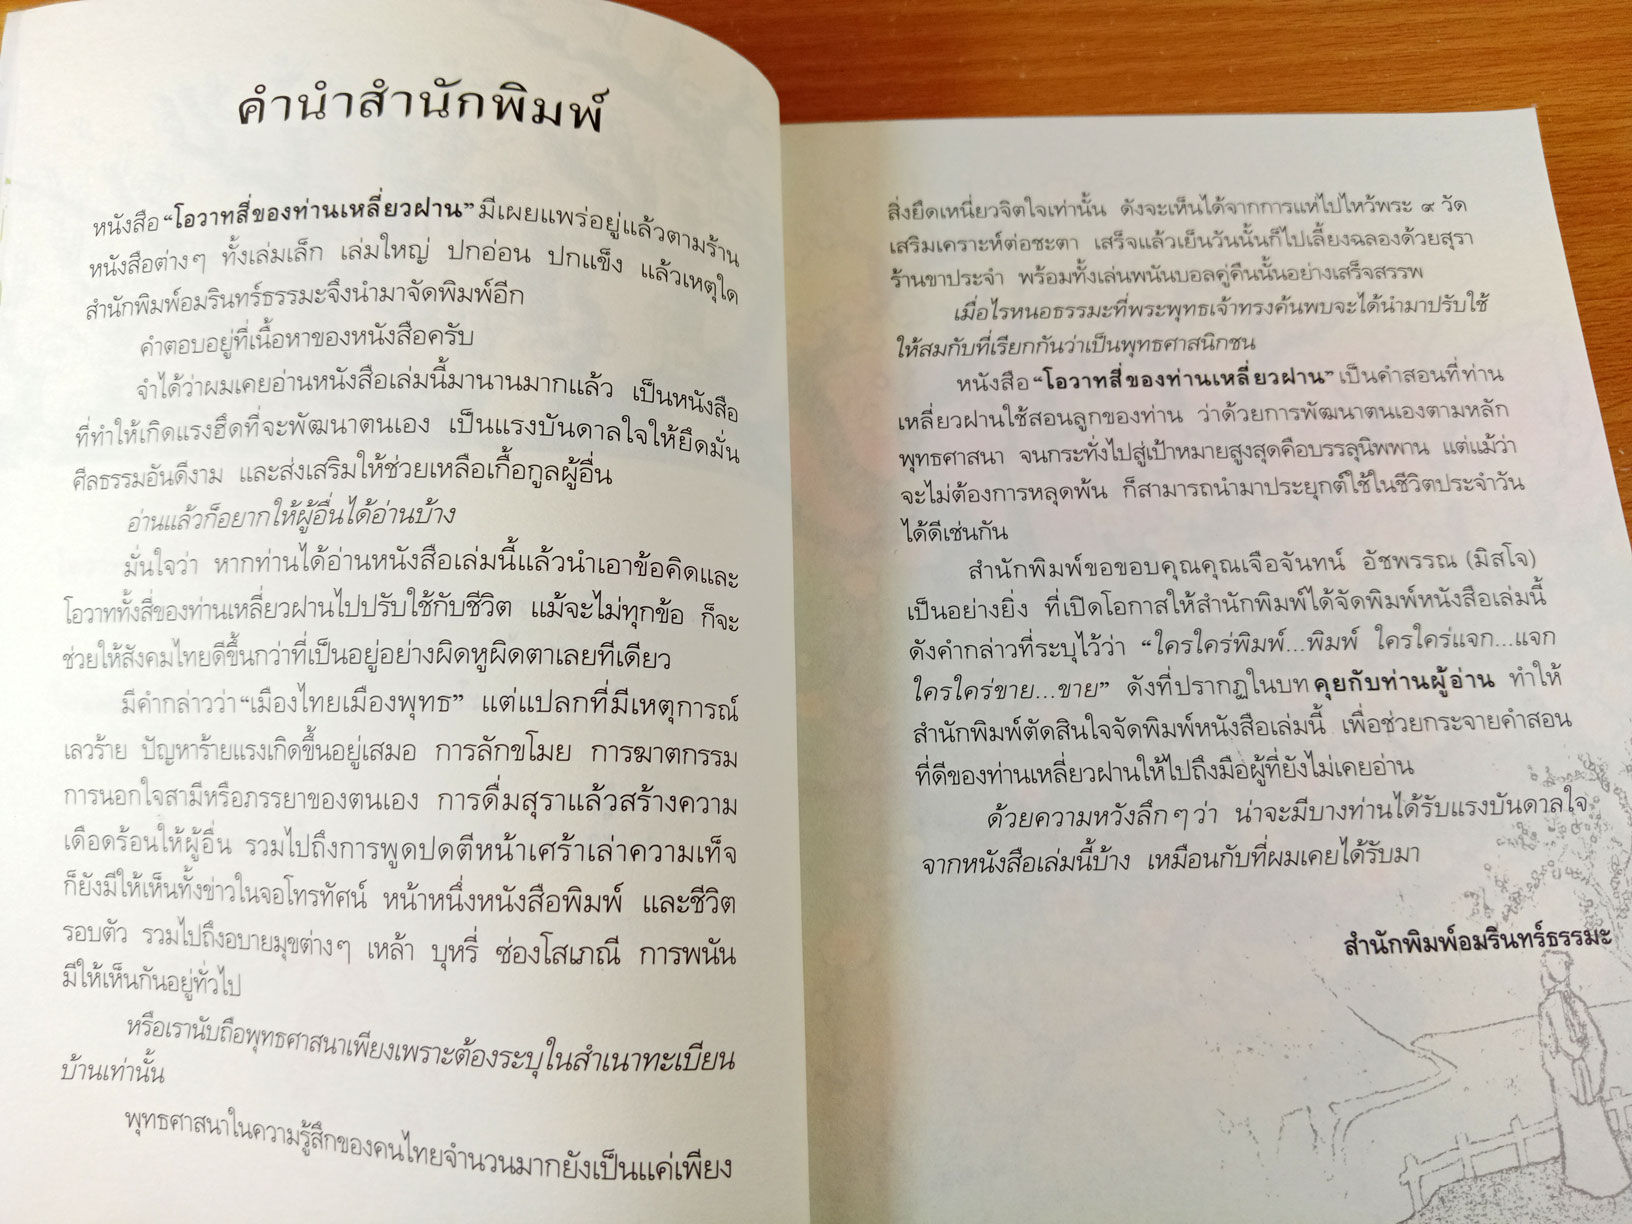 คำนำสำนักพิมพ์
หนังสือ “โอวาทสี่ของท่านเหลี่ยวฝาน” มีเผยแพร่อยู่แล้วตามร้าน
หนังสือต่างๆ ทั้งเล่มเล็ก เล่มใหญ่ ปกอ่อน ปกแข็ง แล้วเหตุใด
สำนักพิมพ์อมรินทร์ธรรมะจึงนำมาจัดพิมพ์อีก
คำตอบอยู่ที่เนื้อหาของหนังสือครับ
จำได้ว่าผมเคยอ่านหนังสือเล่มนี้มานานมากแล้ว เป็นหนังสือ
ที่ทำให้เกิดแรงฮึดที่จะพัฒนาตนเอง เป็นแรงบันดาลใจให้ยึดมั่น
ศีลธรรมอันดีงาม และส่งเสริมให้ช่วยเหลือเกื้อกูลผู้อื่น
อ่านแล้วก็อยากให้ผู้อื่นได้อ่านบ้าง
มั่นใจว่า หากท่านได้อ่านหนังสือเล่มนี้แล้วนำเอาข้อคิดและ
โอวาททั้งสี่ของท่านเหลี่ยวฝานไปปรับใช้กับชีวิต แม้จะไม่ทุกข้อ ก็จะ
ช่วยให้สังคมไทยดีขึ้นกว่าที่เป็นอยู่อย่างผิดหูผิดตาเลยทีเดียว
มีคำกล่าวว่า “เมืองไทยเมืองพุทธ” แต่แปลกที่มีเหตุการณ์
เลวร้าย ปัญหาร้ายแรงเกิดขึ้นอยู่เสมอ การลักขโมย การฆาตกรรม
การนอกใจสามีหรือภรรยาของตนเอง การดื่มสุราแล้วสร้างความ
เดือดร้อนให้ผู้อื่น รวมไปถึงการพูดปดตีหน้าเศร้าเล่าความเท็จ
ก็ยังมีให้เห็นทั้งข่าวในจอโทรทัศน์ หน้าหนึ่งหนังสือพิมพ์ และชีวิต
รอบตัว รวมไปถึงอบายมุขต่างๆ เหล้า บุหรี่ ซ่องโสเภณี การพนัน
มีให้เห็นกันอยู่ทั่วไป
หรือเรานับถือพุทธศาสนาเพียงเพราะต้องระบุในสำเนาทะเบียน
บ้านเท่านั้น
พุทธศาสนาในความรู้สึกของคนไทยจำนวนมากยังเป็นแค่เพียง
สิ่งยึดเหนี่ยวจิตใจเท่านั้น ดังจะเห็นได้จากการแห่ไปไหว้พระ ๙ วัด
เสริมเคราะห์ต่อชะตา เสร็จแล้วเย็นวันนั้นก็ไปเลี้ยงฉลองด้วยสุรา
ร้านขาประจำ พร้อมทั้งเล่นพนันบอลคู่คืนนั้นอย่างเสร็จสรรพ
เมื่อไรหนอธรรมะที่พระพุทธเจ้าทรงค้นพบจะได้นำมาปรับใช้
ให้สมกับที่เรียกกันว่าเป็นพุทธศาสนิกชน
หนังสือ “โอวาทสี่ของท่านเหลี่ยวฝาน” เป็นคำสอนที่ท่าน
เหลี่ยวฝานใช้สอนลูกของท่าน ว่าด้วยการพัฒนาตนเองตามหลัก
พุทธศาสนา จนกระทั่งไปสู่เป้าหมายสูงสุดคือบรรลุนิพพาน แต่แม้ว่า
จะไม่ต้องการหลุดพ้น ก็สามารถนำมาประยุกต์ใช้ในชีวิตประจำวัน
ได้ดีเช่นกัน
สำนักพิมพ์ขอขอบคุณคุณเจือจันทน์ อัชพรรณ (มิสโจ)
เป็นอย่างยิ่ง ที่เปิดโอกาสให้สำนักพิมพ์ได้จัดพิมพ์หนังสือเล่มนี้
ดังคำกล่าวที่ระบุไว้ว่า “ใครใคร่พิมพ์...พิมพ์ ใครใคร่แจก...แจก
ใครใคร่ขาย...ขาย” ดังที่ปรากฏในบท คุยกับท่านผู้อ่าน ทำให้
สำนักพิมพ์ตัดสินใจจัดพิมพ์หนังสือเล่มนี้ เพื่อช่วยกระจายคำสอน
ที่ดีของท่านเหลี่ยวฝานให้ไปถึงมือผู้ที่ยังไม่เคยอ่าน
ด้วยความหวังลึกๆ ว่า น่าจะมีบางท่านได้รับแรงบันดาลใจ
จากหนังสือเล่มนี้บ้าง เหมือนกับที่ผมเคยได้รับมา
สำนักพิมพ์อมรินทร์ธรรมะ